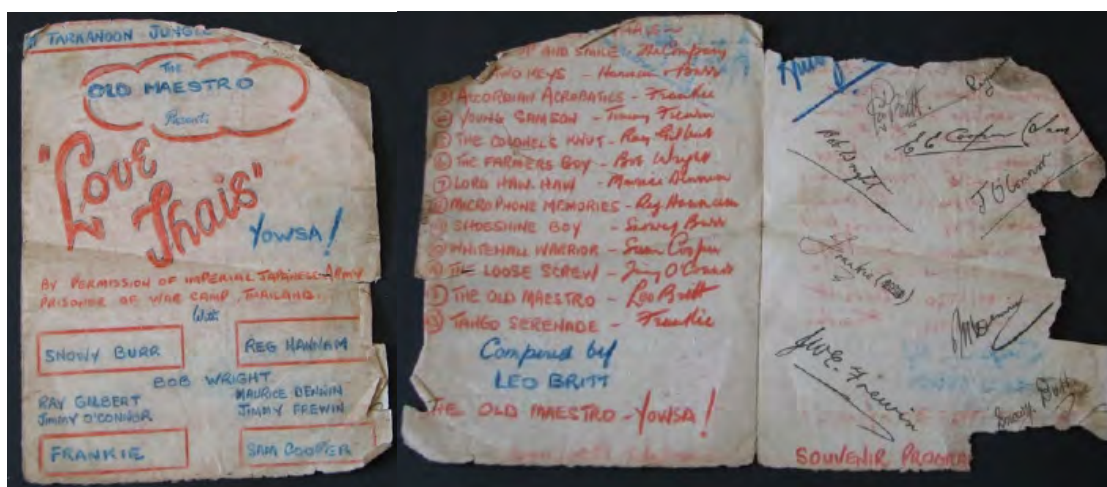 TARKANOON JUNGLE
THE
OLD MAESTRO
Presents
"Love
Thais"
YOWSA!
BY PERMISSION OF IMPERIAL JAPANESE ARMY
PRISONER OF WAR CAMP, THAILAND.
With
SNOWY BURR
REG HANNAM
BOB WRIGHT
RAY GILBERT
MAURICE DENNIN
JIMMY O'CONNOR
JIMMY FREWIN
FRANKIE
SAM COOPER
AND SMILE - The Company
TWO KEYS - Hannam & Burr
③ ACCORDIAN ACROBATICS - Frankie
④ YOUNG SAMSON - Jimmy Frewin
⑤ THE COLONELS KNUT - Ray Gilbert
⑥ THE FARMERS BOY - Bob Wright
⑦ LORD HAW HAW - Maurice Dennin
⑧ MICROPHONE MEMORIES - Reg Hannam
SHOESHINE BOY - Snowy Burr
WHITEHALL WARRIOR - Sam Cooper
THE LOOSE SCREW - Jimmy O'Connor
THE OLD MAESTRO - Leo Britt
⑬ TANGO SERENADE - Frankie
Compered by
LEO BRITT
THE OLD MAESTRO - YOWSA!
Leo Britt.
Reg
Bob Wright
C C Cooper (Sam)
J O'Connor
Frankie
J.W.E. Frewin
Snowy
SOUVENIR PROGRA